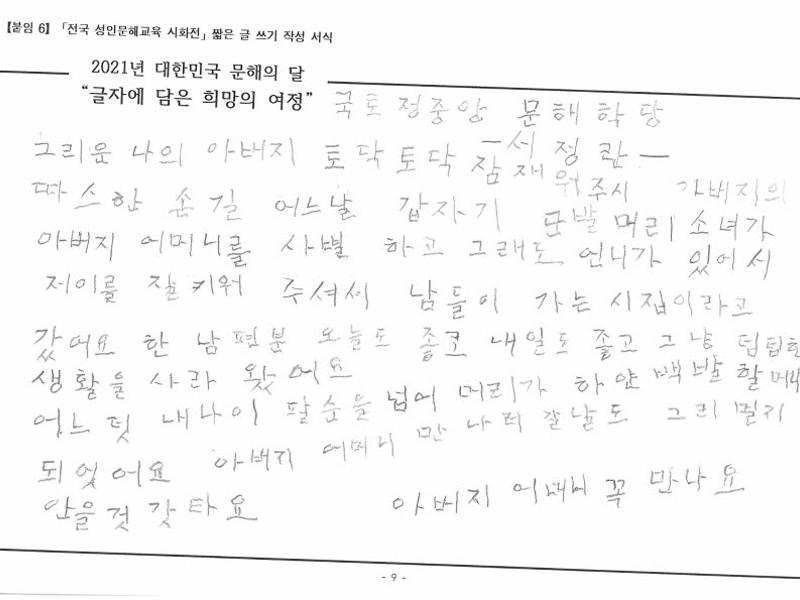 【붙임 6】「전국 성인문해교육 시화전」 짧은 글 쓰기 작성 서식
2021년 대한민국 문해의 달
“글자에 담은 희망의 여정”
국토정중앙 문해학당
-서정란-
그리운 나의 아버지 토닥토닥 잠재워주시
따스한 손길 어느날 갑자기 단발머리 소녀가
아버지 어머니를 사별 하고 그래도 언니가 있어서
저이를 잘키워 주셔서 남들이 가는 시집이라고
갔어요 한 남편분 오늘도 좋고 내일도 좋고 그냥
생활을 사라 왔어요
어느덧 내나이 팔순을 넘어 머리가 하얀백발할머니
되엇어요 아버지 어머니 만나러갈날도 그리 멀지
안을것 갓타요 아버지 어머니 꼭 만나요
- 9 -